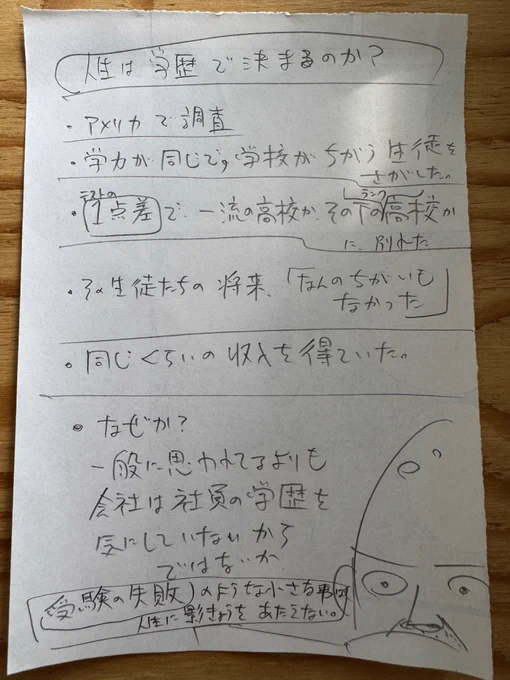 人生は学歴で決まるのか?
・アメリカで調査
・学力が同じで、学校がちがう生徒を
さがした。
テストの ランク
・1点差で、一流の高校か、その下の高校か
に、別れた
・その生徒たちの将来、「なんのちがいも
なかった」
・同じくらいの収入を得ていた。
・なぜか?
一般に思われてるよりも
会社は社員の学歴を
気にしていないから
ではないか
受験の失敗)のような小さな事は
人生に影きょうをあたえない。